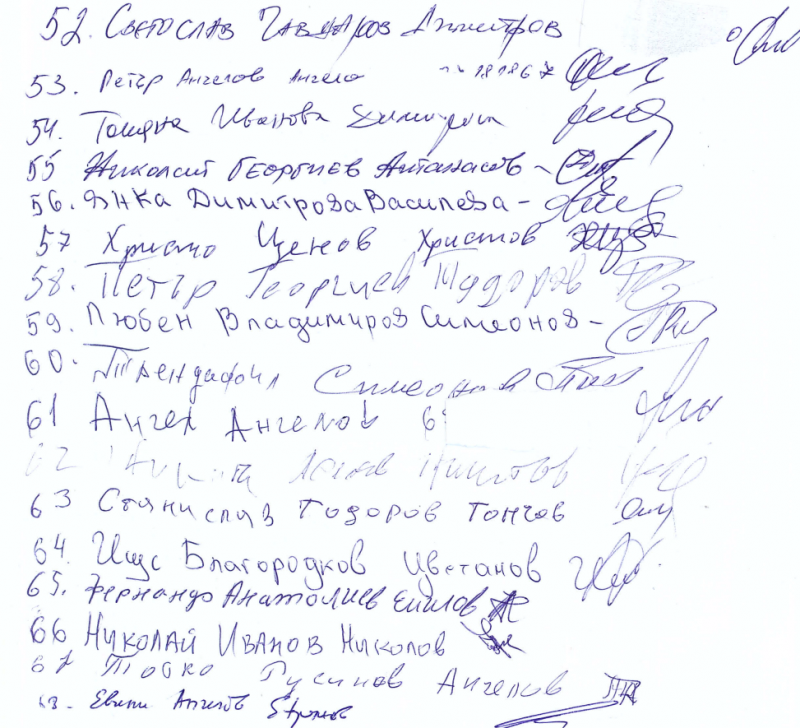 52. Светослав Чавдаров Димитров
53. Петър Ангелов Ангело
54. Татяна Иванова
55 Николай Георгиев Атанасов -
56. Янка Димитрова Василева -
57 Христо Ценов Христов
58. Петър Георгиев Тодоров
59. Любен Владимиров Симеонов -
60. Трендафил Симеонов
61 Ангел Ангелов
62
63 Станислав Тодоров Тончов
64 Благородков Цветанов
65. Фернандо Анатолиев Емилов
66 Николай Иванов Николов
67 Ангелов
68. Ангелов